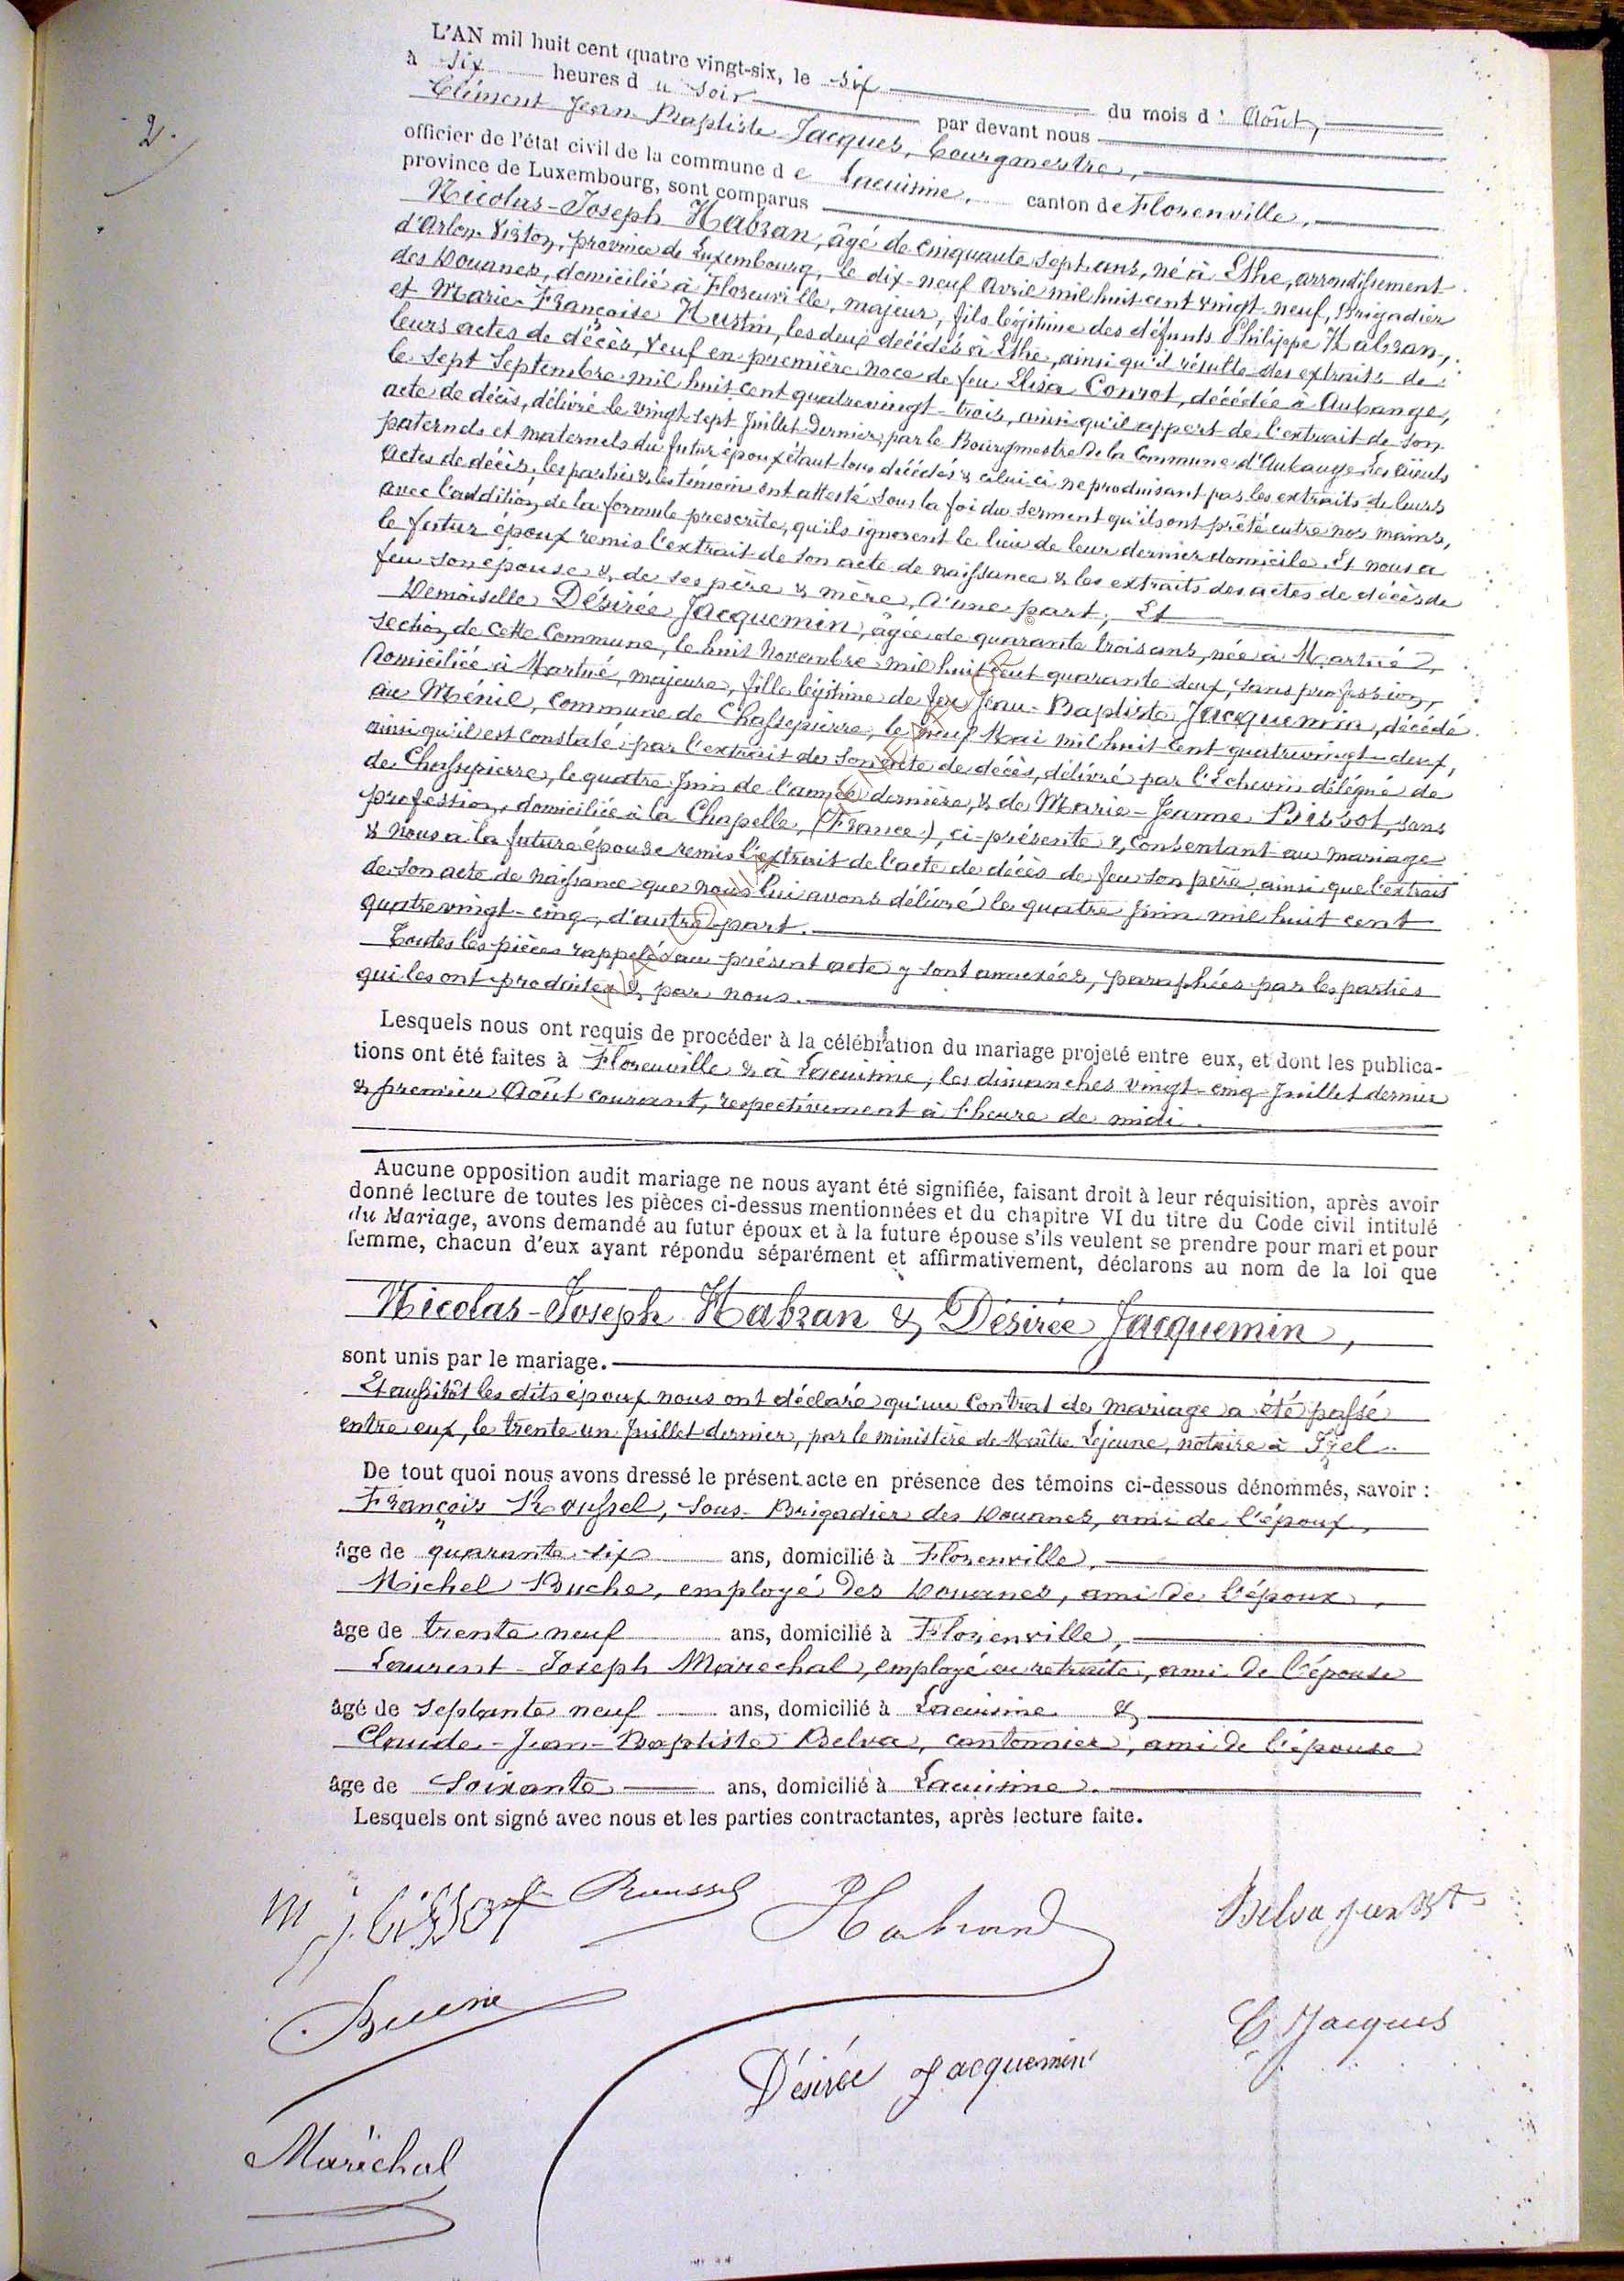 2.
L'AN mil huit cent quatre vingt-six, le six du mois d' Août,
à six heures du soir par devant nous
Clément Jean Baptiste Jacques, bourgmestre,
officier de l'état civil de la commune de Lacuisine, canton de Florenville,
province de Luxembourg, sont comparus
Nicolas-Joseph Habran, âgé de cinquante sept ans, né à Ethe, arrondissement
d'Arlon-Virton, province de Luxembourg, le dix-neuf Avril mil huit cent vingt-neuf, Brigadier
des Douanes, domicilié à Florenville, majeur, fils légitime des défunts Philippe Habran,
et Marie-Françoise Hustin, les deux décédés à Ethe, ainsi qu'il résulte des extraits de
leurs actes de décès, veuf en première noce de feu Elisa Conrot, décédée à Aubange,
le sept Septembre mil huit cent quatrevingt-trois, ainsi qu'il appert de l'extrait de son
acte de décès, délivré le vingt sept Juillet dernier, par le Bourgmestre de la Commune d'Aubange. Les aïeuls
paternels et maternels du futur époux étant tous décédés & celui ci ne produisant pas les extraits de leurs
actes de décès, les parties & les témoins ont attesté sous la foi du serment qu'ils ont prêté entre nos mains,
avec l'addition de la formule prescrite, qu'ils ignorent le lieu de leur dernier domicile. Et nous a
le futur époux remis l'extrait de son acte de naissance & les extraits des actes de décès de
feu son épouse & de ses père & mère, d'une part, Et
Demoiselle Désirée Jacquemin, âgée de quarante trois ans, née à Martué,
section de cette Commune, le huit Novembre mil huit cent quarante deux, sans profession,
domiciliée à Martué, majeure, fille légitime de feu Jean-Baptiste Jacquemin, décédé
au Ménil, commune de Chassepierre, le neuf Mai mil huit cent quatrevingt-deux,
ainsi qu'il est constaté par l'extrait de son acte de décès, délivré par l'Echevin délégué de
de Chassepierre, le quatre Juin de l'année dernière, & de Marie-Jeanne Bissot, sans
profession, domiciliée à la Chapelle, (France), ci-présente & consentant au mariage
& nous a la future épouse remis l'extrait de l'acte de décès de feu son père ainsi que l'extrait
de son acte de naissance que nous lui avons délivré le quatre Juin mil huit cent
quatrevingt-cinq, d'autre part.
Toutes les pièces rappelées au présent acte y sont annexées, paraphées par les parties
qui les ont produites & par nous.
Lesquels nous ont requis de procéder à la célébration du mariage projeté entre eux, et dont les publica-
tions ont été faites à Florenville & à Lacuisine, les dimanches vingt-cinq Juillet dernier
& premier Août courant, respectivement à l'heure de midi.
Aucune opposition audit mariage ne nous ayant été signifiée, faisant droit à leur réquisition, après avoir
donné lecture de toutes les pièces ci-dessus mentionnées et du chapitre VI du titre du Code civil intitulé
du Mariage, avons demandé au futur époux et à la future épouse s'ils veulent se prendre pour mari et pour
femme, chacun d'eux ayant répondu séparément et affirmativement, déclarons au nom de la loi que
Nicolas-Joseph Habran & Désirée Jacquemin,
sont unis par le mariage.
Et aussitôt les dits époux nous ont déclaré qu'un Contrat de mariage a été passé
entre eux, le trente un Juillet dernier, par le ministère de Maître Lejeune, notaire à Izel.
De tout quoi nous avons dressé le présent acte en présence des témoins ci-dessous dénommés, savoir :
François Roussel, Sous-Brigadier des Douanes, ami de l'époux,
âge de quarante six ans, domicilié à Florenville,
Michel Buche, employé des Douanes, ami de l'époux,
âge de trente neuf ans, domicilié à Florenville,
Laurent-Joseph Maréchal, employé en retraite, ami de l'épouse
âgé de septante neuf ans, domicilié à Lacuisine &
Claude-Jean-Baptiste Belva, cantonnier, ami de l'épouse
âge de Soixante ans, domicilié à Lacuisine.
Lesquels ont signé avec nous et les parties contractantes, après lecture faite.
m j bissot Roussel Habran Belva jean Bt
C. Jacques
Désirée Jacquemin
Maréchal